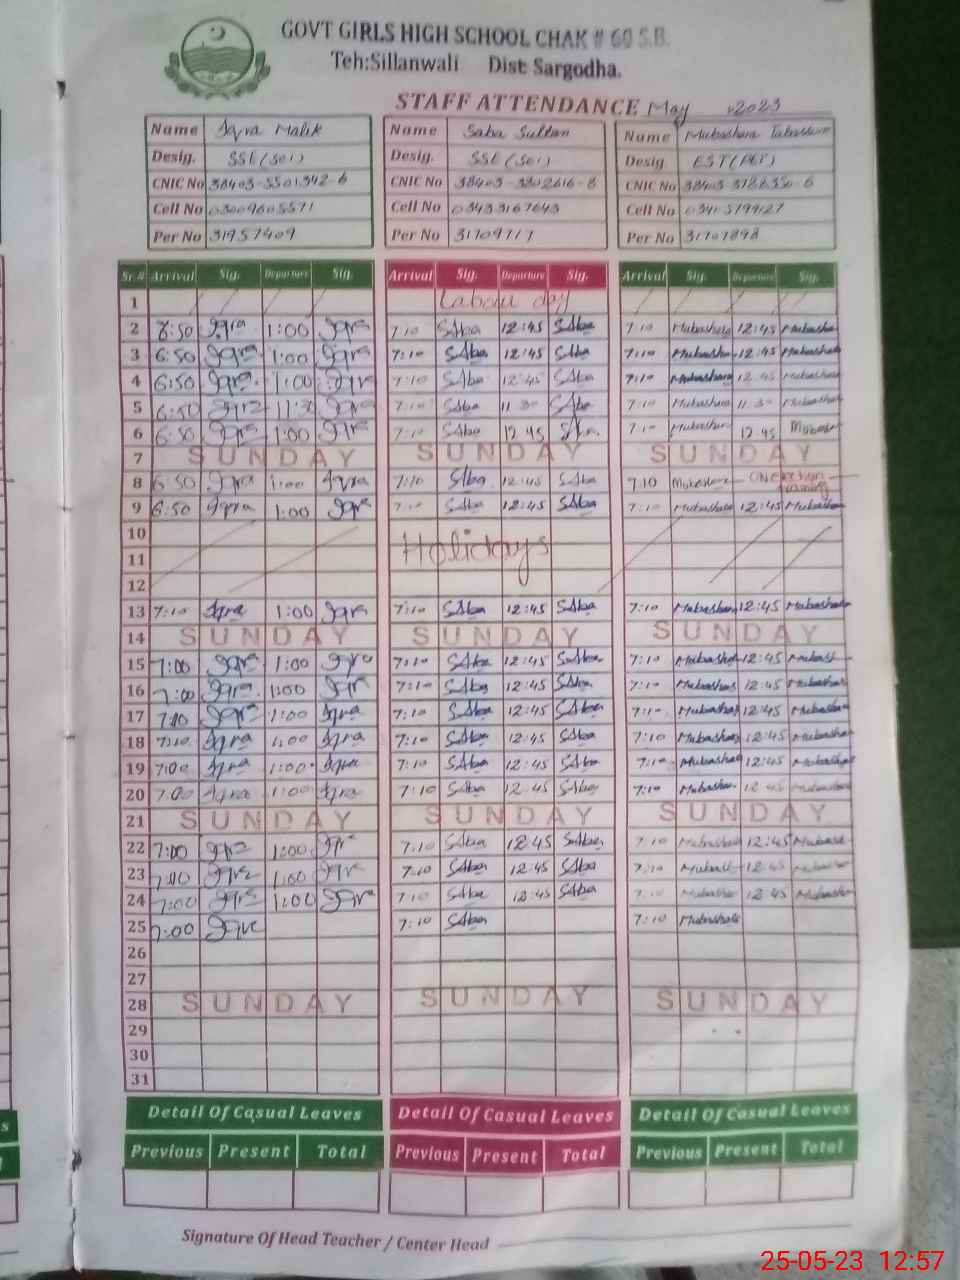 GOVT GIRLS HIGH SCHOOL CHAK # 60 S.B.
Teh:Sillanwali Dist: Sargodha.
STAFF ATTENDANCE May 2023
Name Iqra Malik Name Saba Sultan Name Mubashara Tabassum
Desig. SSE (Sci) Desig. SSE (Sci) Desig EST (PET)
CNIC No CNIC No CNIC No
Cell No 03009605571 Cell No 03433167643 Cell No
Per No 31957409 Per No 31709717 Per No 31707898
Sr.# Arrival Sig. Departure Sig. Arrival Sig. Departure Sig. Arrival Sig. Departure Sig.
1 Labour day
2 6:50 Iqra 1:00 Iqra 7:10 SAba 12:45 SAba 7:10 Mubashara 12:45 Mubasha
3 6:50 Iqra 1:00 Iqra 7:10 SAba 12:45 SAba 7:10 Mubasha 12:45 Mubashara
4 6:50 Iqra 1:00 Iqra 7:10 SAba 12:45 SAba 7:10 Mubashara 12:45 Mubashara
5 6:50 Iqra 11:30 Iqra 7:10 SAba 11:30 SAba 7:10 Mubashara 11:30 Mubashara
6 6:50 Iqra 1:00 Iqra 7:10 SAba 12:45 SAba 7:10 Mubashara 12:45 Mubashar
7 SUNDAY SUNDAY SUNDAY
8 6:50 Iqra 1:00 Iqra 7:10 SAba 12:45 SAba 7:10 Mubashara ON
9 6:50 Iqra 1:00 Iqra 7:10 SAba 12:45 SAba 7:10 Mubashara 12:45 Mubashara
10
11 Holidays
12
13 7:10 Iqra 1:00 Iqra 7:10 SAba 12:45 SAba 7:10 Mubashara 12:45 Mubashara
14 SUNDAY SUNDAY SUNDAY
15 7:00 Iqra 1:00 Iqra 7:10 SAba 12:45 SAba 7:10 Mubashar 12:45 Mubash
16 7:00 Iqra 1:00 Iqra 7:10 SAba 12:45 SAba 7:10 Mubashara 12:45 Mubashara
17 7:10 Iqra 1:00 Iqra 7:10 SAba 12:45 SAba 7:10 Mubashara 12:45 Mubashara
18 7:10 Iqra 1:00 Iqra 7:10 SAba 12:45 SAba 7:10 Mubashara 12:45 Mubashara
19 7:00 Iqra 1:00 Iqra 7:10 SAba 12:45 SAba 7:10 Mubashara 12:45 Mubashara
20 7:00 Iqra 1:00 Iqra 7:10 SAba 12:45 SAba 7:10 Mubashar 12:45 Mubashara
21 SUNDAY SUNDAY SUNDAY
22 7:00 Iqra 1:00 Iqra 7:10 SAba 12:45 SAba 7:10 Mubashara 12:45 Mubasha
23 7:00 Iqra 1:00 Iqra 7:10 SAba 12:45 SAba 7:10 Mubash 12:45
24 7:00 Iqra 1:00 Iqra 7:10 SAba 12:45 SAba 7:10 Mubashar 12:45 Mubashar
25 7:00 Iqra 7:10 SAba 7:10 Mubashara
26
27
28 SUNDAY SUNDAY SUNDAY
29
30
31
Detail Of Casual Leaves Detail Of Casual Leaves Detail Of Casual Leaves
Previous Present Total Previous Present Total Previous Present Total
Signature Of Head Teacher / Center Head
25-05-23 12:57